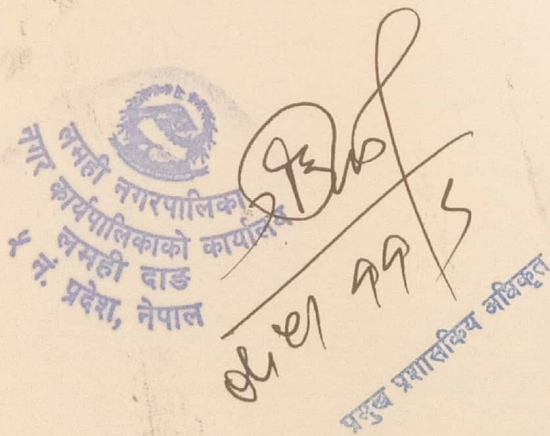 लमही नगरपालिका
नगर कार्यपालिकाको कार्यालय
लमही दाङ
५ नं. प्रदेश, नेपाल
प्रमुख प्रशासकिय अधिकृत